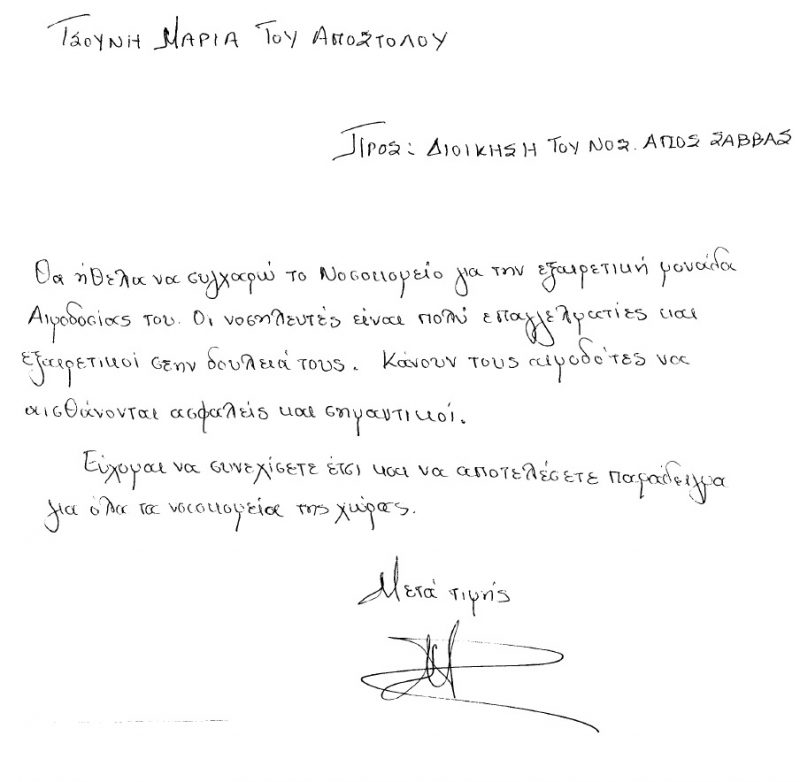 ΤΣΟΥΝΗ ΜΑΡΙΑ ΤΟΥ ΑΠΟΣΤΟΛΟΥ
ΠΡΟΣ: ΔΙΟΙΚΗΣΗ ΤΟΥ ΝΟΣ. ΑΓΙΟΣ ΣΑΒΒΑΣ
Θα ήθελα να συγχαρώ το Νοσοκομείο για την εξαιρετική μονάδα
Αιμοδοσίας του. Οι νοσηλευτές είναι πολύ επαγγελματίες και
εξαιρετικοί στην δουλειά τους. Κάνουν τους αιμοδότες να
αισθάνονται ασφαλείς και σημαντικοί.
Εύχομαι να συνεχίσετε έτσι και να αποτελέσετε παράδειγμα
για όλα τα νοσοκομεία της χώρας.
Μετά τιμής